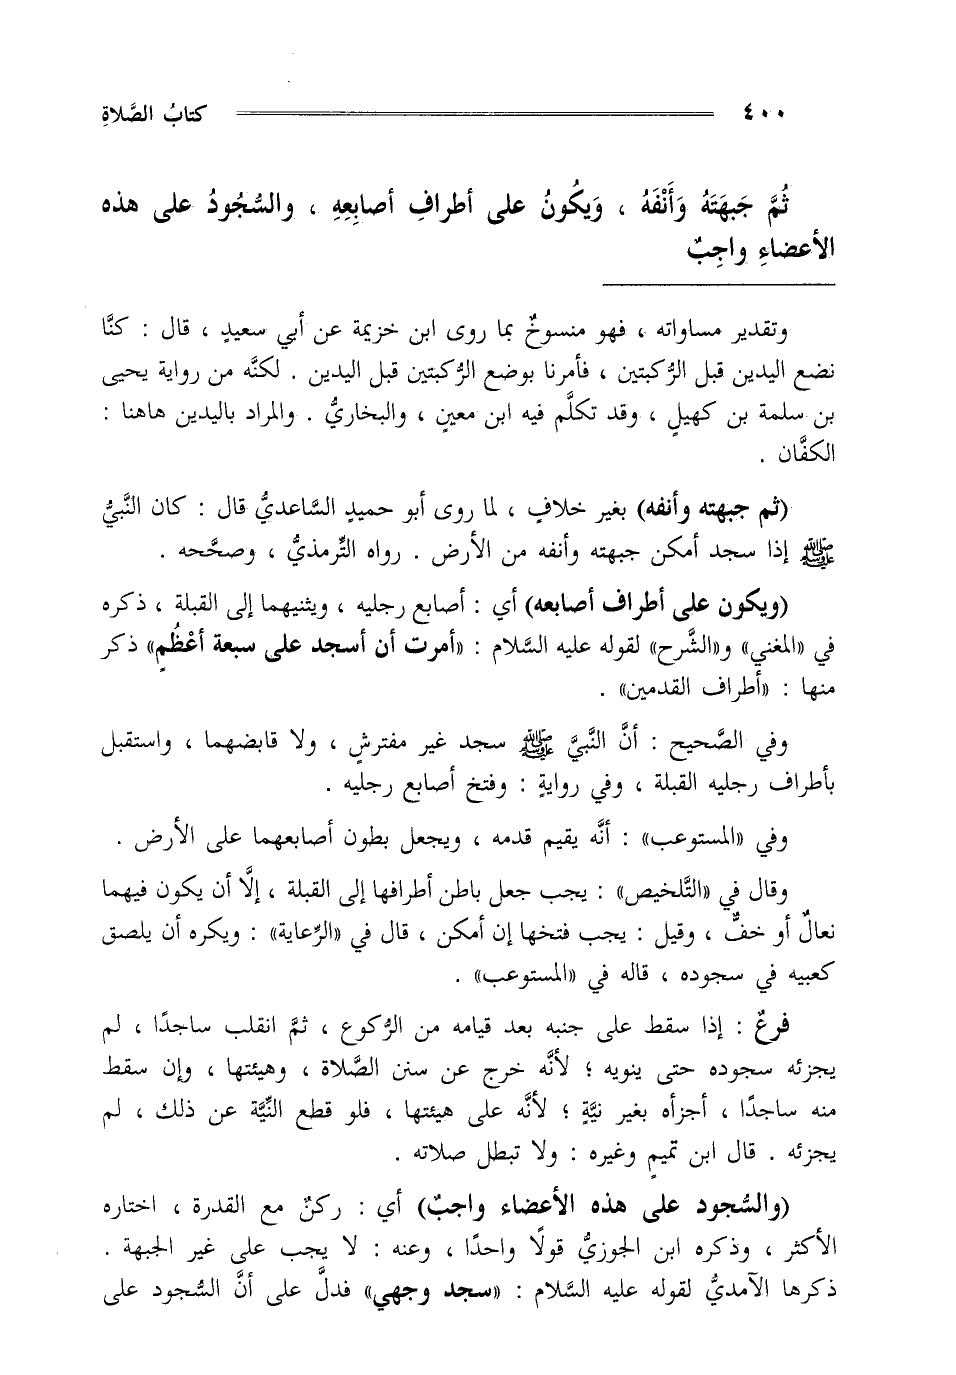 ٤٠٠ كتابُ الصَّلاةِ
ثُمَّ جَبهَتَهُ وَأَنْفَهُ ، وَيكُونُ على أطرافِ أصابِعِهِ ، والسُّجُودُ على هذه
الأعضاءِ واجِبٌ
وتقدير مساواته ، فهو منسوخٌ بما روى ابن خزيمة عن أبي سعيدٍ ، قال : كنَّا
نضع اليدين قبل الرُّكبتين ، فأمرنا بوضع الرُّكبتين قبل اليدين . لكنَّه من رواية يحيى
بن سلمة بن كهيلٍ ، وقد تكلَّم فيه ابن معينٍ ، والبخاريُّ . والمراد باليدين هاهنا :
الكفَّان .
(ثم جبهته وأنفه) بغير خلافٍ ، لما روى أبو حميدٍ السَّاعديُّ قال : كان النَّبيُّ
ﷺ إذا سجد أمكن جبهته وأنفه من الأرض . رواه التِّرمذيُّ ، وصحَّحه .
(ويكون على أطراف أصابعه) أي : أصابع رجليه ، ويثنيهما إلى القبلة ، ذكره
في «المغني» و«الشَّرح» لقوله عليه السَّلام : «أمرت أن أسجد على سبعة أعْظُمٍ» ذكر
منها : «أطراف القدمين» .
وفي الصَّحيح : أنَّ النَّبيَّ ﷺ سجد غير مفترشٍ ، ولا قابضهما ، واستقبل
بأطراف رجليه القبلة ، وفي روايةٍ : وفتخ أصابع رجليه .
وفي «المستوعب» : أنَّه يقيم قدمه ، ويجعل بطون أصابعهما على الأرض .
وقال في «التَّلخيص» : يجب جعل باطن أطرافها إلى القبلة ، إلَّا أن يكون فيهما
نعالٌ أو خفٌّ ، وقيل : يجب فتخها إن أمكن ، قال في «الرِّعاية» : ويكره أن يلصق
كعبيه في سجوده ، قاله في «المستوعب» .
فرعٌ : إذا سقط على جنبه بعد قيامه من الرُّكوع ، ثمَّ انقلب ساجدًا ، لم
يجزئه سجوده حتى ينويه ؛ لأنَّه خرج عن سنن الصَّلاة ، وهيئتها ، وإن سقط
منه ساجدًا ، أجزأه بغير نيَّةٍ ؛ لأنَّه على هيئتها ، فلو قطع النِّيَّة عن ذلك ، لم
يجزئه . قال ابن تميمٍ وغيره : ولا تبطل صلاته .
(والسُّجود على هذه الأعضاء واجبٌ) أي : ركنٌ مع القدرة ، اختاره
الأكثر ، وذكره ابن الجوزيُّ قولًا واحدًا ، وعنه : لا يجب على غير الجبهة .
ذكرها الآمديُّ لقوله عليه السَّلام : «سجد وجهي» فدلَّ على أنَّ السُّجود على